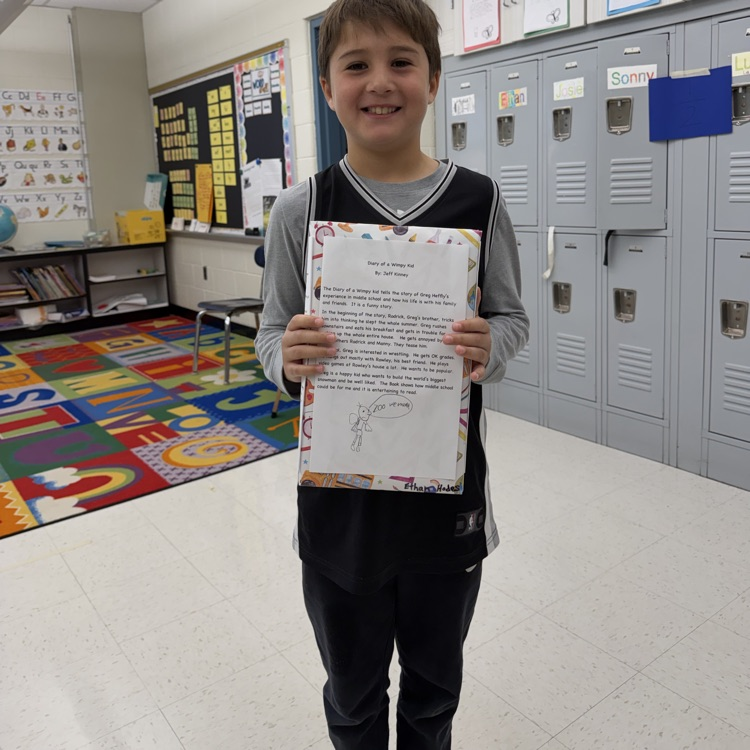 Cc Dd Ee Ff G
Jj Kk Ll M N
Qu Rr S T
V W X Y Z
Ethan
Josie
Sonny
Lu
Diary of a Wimpy Kid
By: Jeff Kinney
The Diary of a Wimpy kid tells the story of Greg Heffly's
experience in middle school and how his life is with his family
and friends. It is a funny story.
In the beginning of the story, Rodrick, Greg's brother, tricks
him into thinking he slept the whole summer. Greg rushes
downstairs and eats his breakfast and gets in trouble for
up the whole entire house. He gets annoyed by
brothers Rodrick and Manny. They tease him.
Greg is interested in wrestling. He gets OK grades
out mostly with Rowley, his best friend. He plays
games at Rowley's house a lot. He wants to be popular.
Greg is a happy kid who wants to build the world's biggest
snowman and be well liked. The Book shows how middle school
could be for me and it is entertaining to read.
ZOO
Ethan